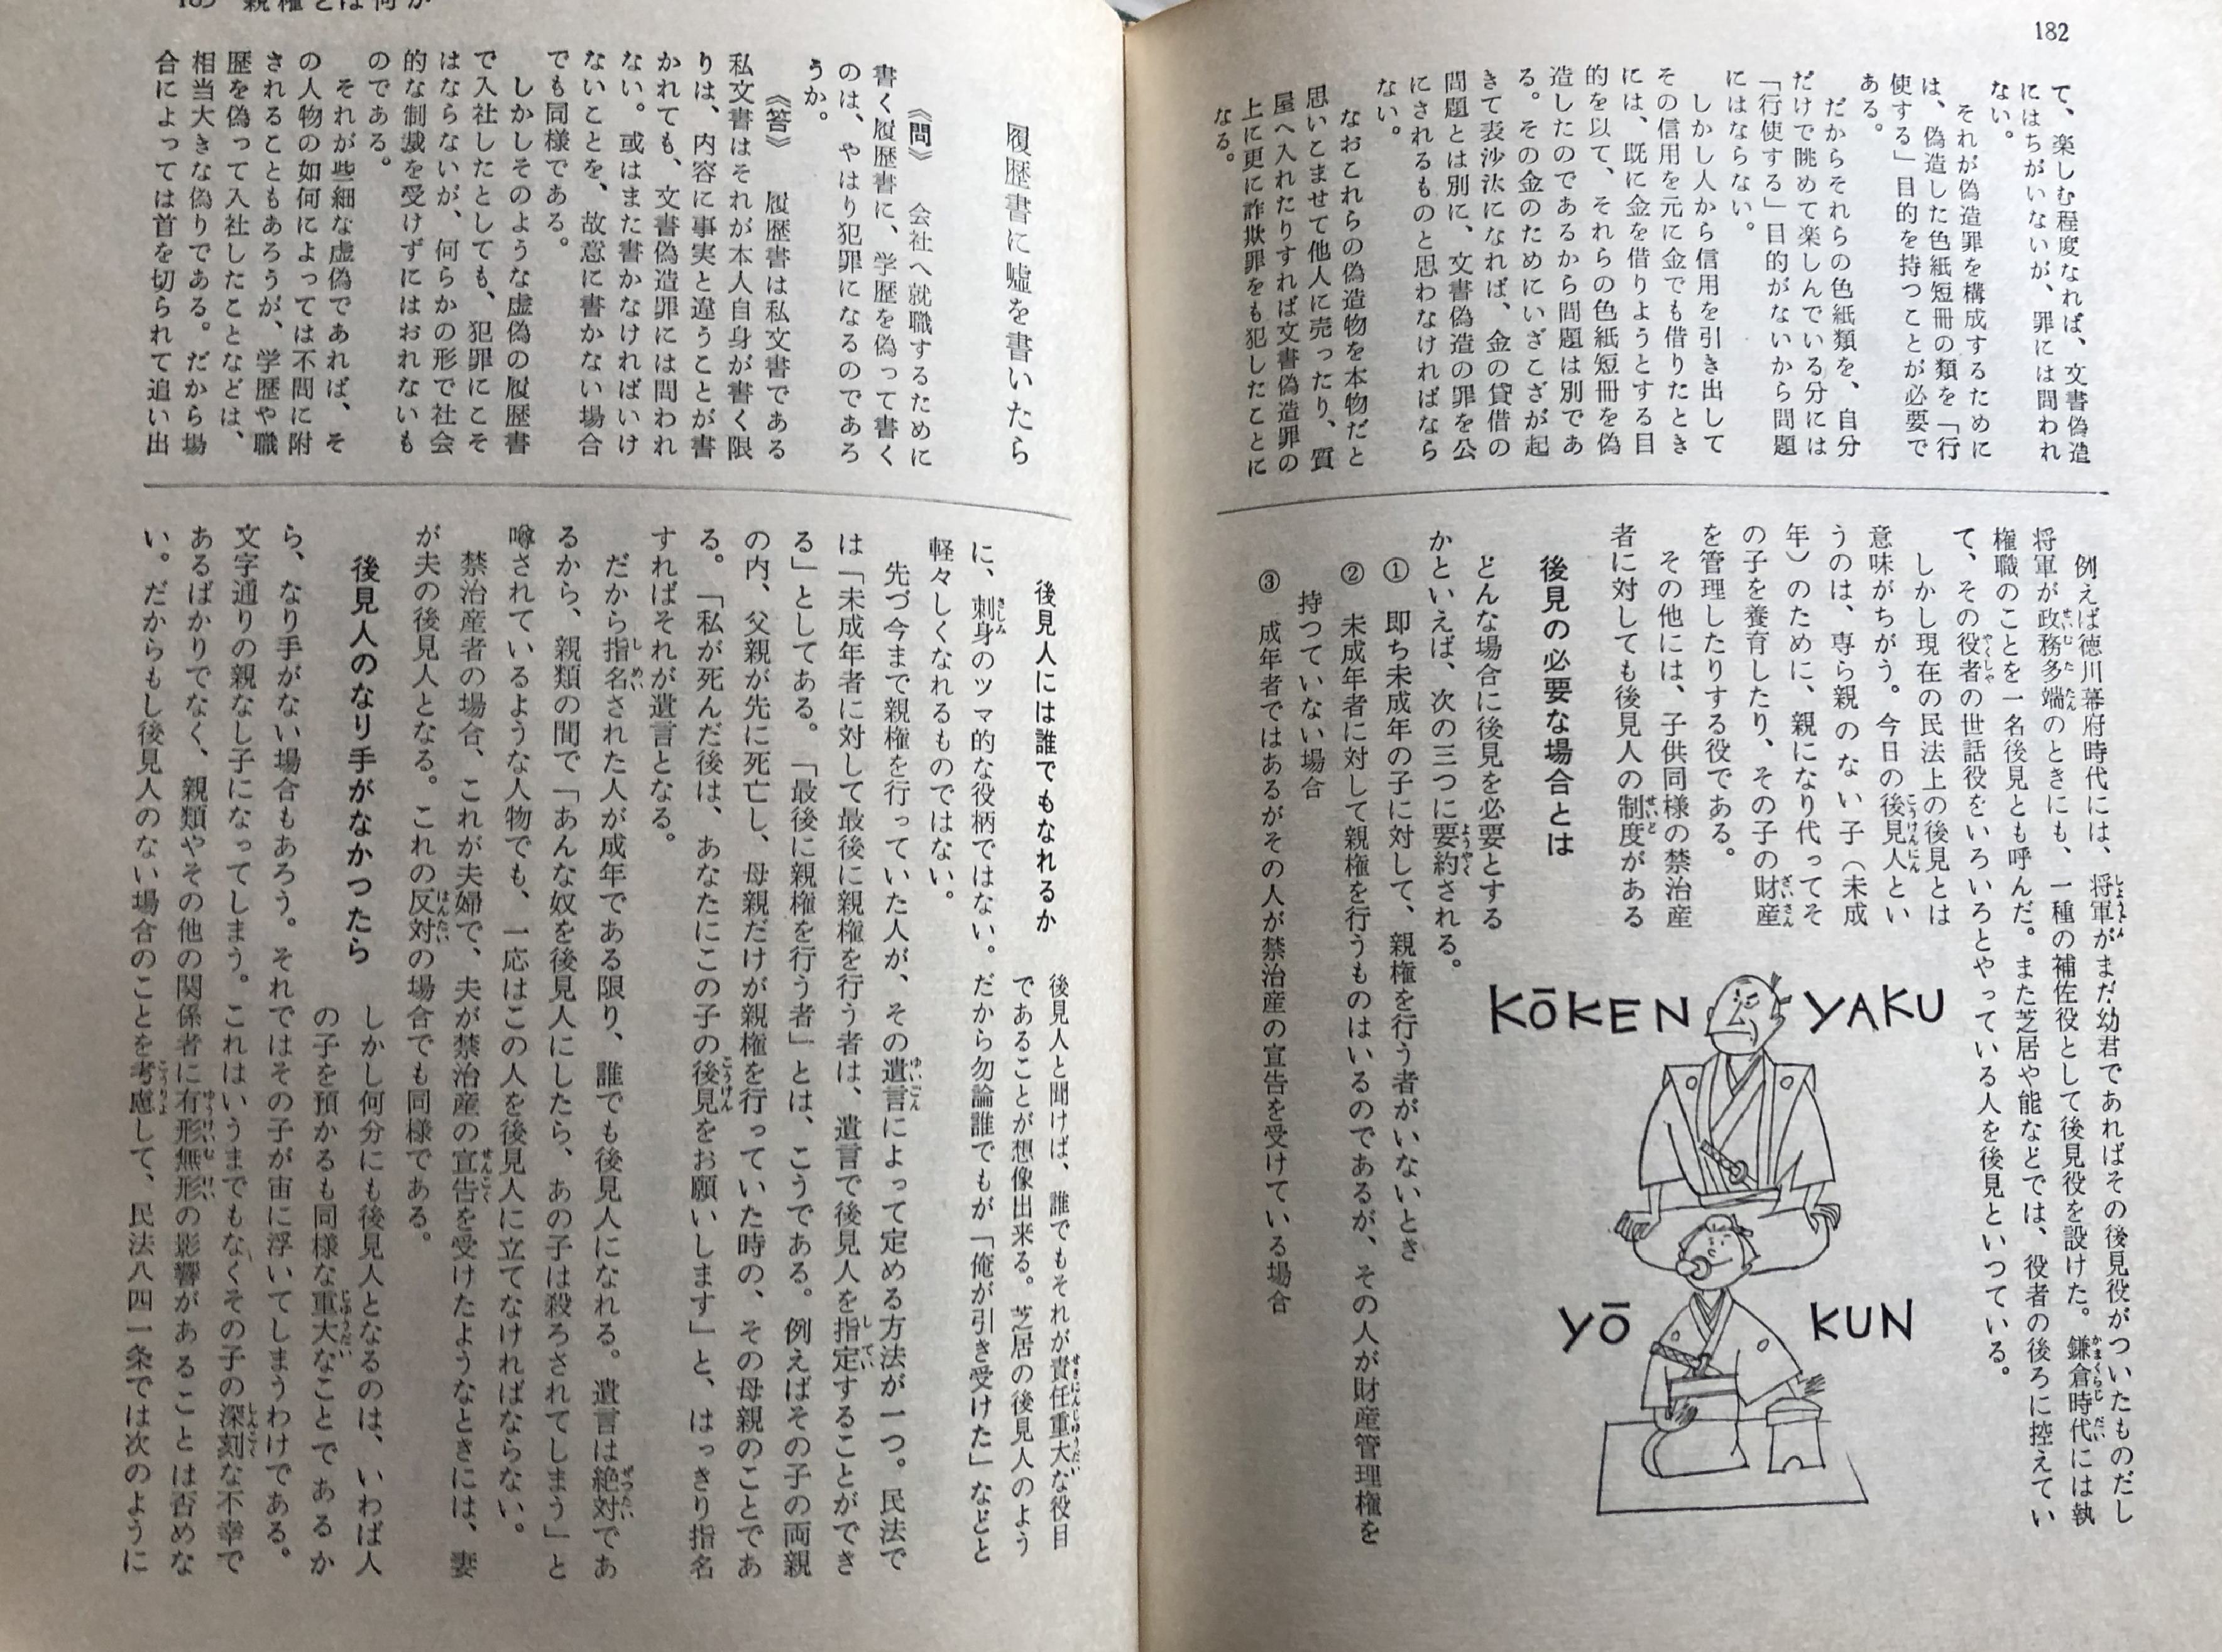 182
て、楽しむ程度なれば、文書偽造
にはちがいないが、罪には問われ
ない。
それが偽造罪を構成するために
は、偽造した色紙短冊の類を「行
使する」目的を持つことが必要で
ある。
だからそれらの色紙類を、自分
だけで眺めて楽しんでいる分には
「行使する」目的がないから問題
にはならない。
しかし人から信用を引き出して
その信用を元に金でも借りたとき
には、既に金を借りようとする目
的を以て、それらの色紙短冊を偽
造したのであるから問題は別であ
る。その金のためにいざこざが起
きて表沙汰になれば、金の貸借の
問題とは別に、文書偽造の罪を公
にされるものと思わなければなら
ない。
なおこれらの偽造物を本物だと
思いこませて他人に売ったり、質
屋へ入れたりすれば文書偽造罪の
上に更に詐欺罪をも犯したことに
なる。
例えば徳川幕府時代には、将軍がまだ幼君であればその後見役がついたものだし
将軍が政務多端のときにも、一種の補佐役として後見役を設けた。鎌倉時代には執
権職のことを一名後見とも呼んだ。また芝居や能などでは、役者の後ろに控えてい
て、その役者の世話役をいろいろとやっている人を後見といつている。
しかし現在の民法上の後見とは
意味がちがう。今日の後見人とい
うのは、専ら親のない子（未成
年）のために、親になり代ってそ
の子を養育したり、その子の財産
を管理したりする役である。
その他には、子供同様の禁治産
者に対しても後見人の制度がある
後見の必要な場合とは
どんな場合に後見を必要とする
かといえば、次の三つに要約される。
① 即ち未成年の子に対して、親権を行う者がいないとき
② 未成年者に対して親権を行うものはいるのであるが、その人が財産管理権を
持つていない場合
③ 成年者ではあるがその人が禁治産の宣告を受けている場合
KŌKEN YAKU
YŌ KUN
185 親権とは何か
履歴書に嘘を書いたら
《問》 会社へ就職するために
書く履歴書に、学歴を偽って書く
のは、やはり犯罪になるのであろ
うか。
《答》 履歴書は私文書である
私文書はそれが本人自身が書く限
りは、内容に事実と違うことが書
かれても、文書偽造罪には問われ
ない。或はまた書かなければいけ
ないことを、故意に書かない場合
でも同様である。
しかしそのような虚偽の履歴書
で入社したとしても、犯罪にこそ
はならないが、何らかの形で社会
的な制裁を受けずにはおれないも
のである。
それが些細な虚偽であれば、そ
の人物の如何によっては不問に附
されることもあろうが、学歴や職
歴を偽って入社したことなどは、
相当大きな偽りである。だから場
合によっては首を切られて追い出
後見人には誰でもなれるか
後見人と聞けば、誰でもそれが責任重大な役目
であることが想像出来る。芝居の後見人のよう
に、刺身のツマ的な役柄ではない。だから勿論誰でもが「俺が引き受けた」などと
軽々しくなれるものではない。
先づ今まで親権を行っていた人が、その遺言によって定める方法が一つ。民法で
は「未成年者に対して最後に親権を行う者は、遺言で後見人を指定することができ
る」としてある。「最後に親権を行う者」とは、こうである。例えばその子の両親
の内、父親が先に死亡し、母親だけが親権を行っていた時の、その母親のことであ
る。「私が死んだ後は、あなたにこの子の後見をお願いします」と、はっきり指名
すればそれが遺言となる。
だから指名された人が成年である限り、誰でも後見人になれる。遺言は絶対であ
るから、親類の間で「あんな奴を後見人にしたら、あの子は殺ろされてしまう」と
噂されているような人物でも、一応はこの人を後見人に立てなければならない。
禁治産者の場合、これが夫婦で、夫が禁治産の宣告を受けたようなときには、妻
が夫の後見人となる。これの反対の場合でも同様である。
後見人のなり手がなかつたら
しかし何分にも後見人となるのは、いわば人
の子を預かるも同様な重大なことであるか
ら、なり手がない場合もあろう。それではその子が宙に浮いてしまうわけである。
文字通りの親なし子になってしまう。これはいうまでもなくその子の深刻な不幸で
あるばかりでなく、親類やその他の関係者に有形無形の影響があることは否めな
い。だからもし後見人のない場合のことを考慮して、民法八四一条では次のように